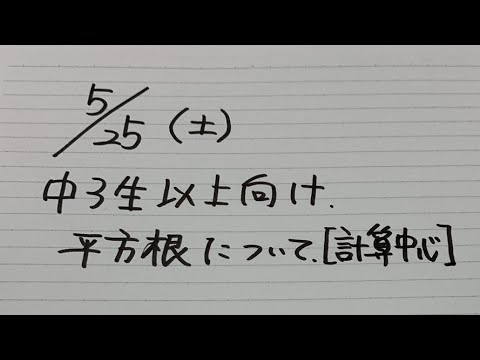 5/25 (土)
中3生以上向け.
平方根について.[計算中心]